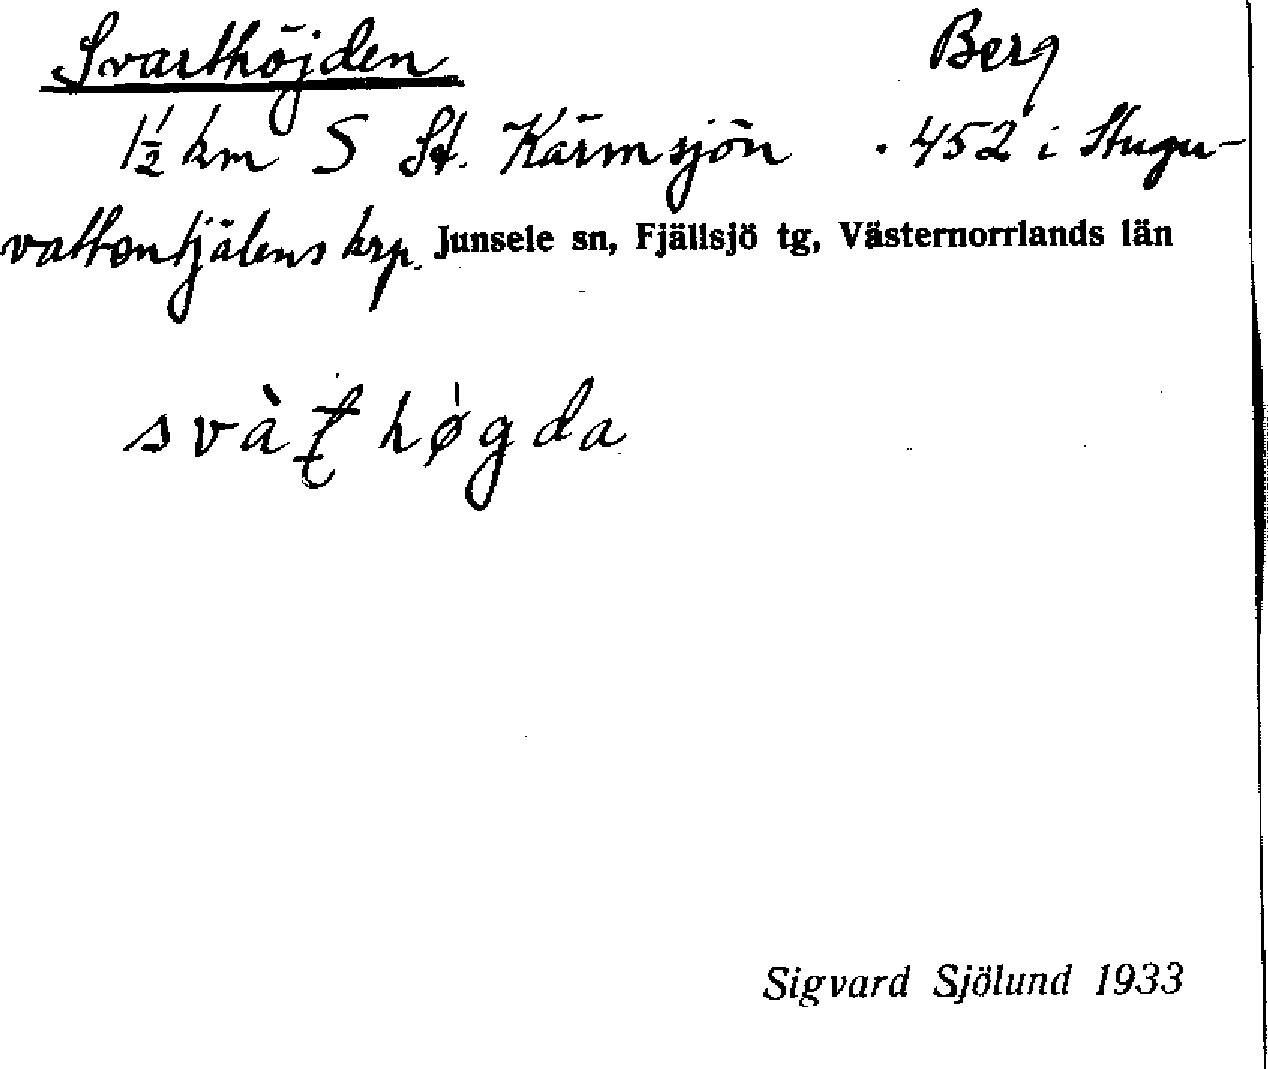 Svarthöjden Berg
1½ km S St. Kärmsjön . 452 i Stugu-
vattentjälens krp. Junsele sn, Fjällsjö tg, Västernorrlands län
svàţhø̍gda
Sigvard Sjölund 1933